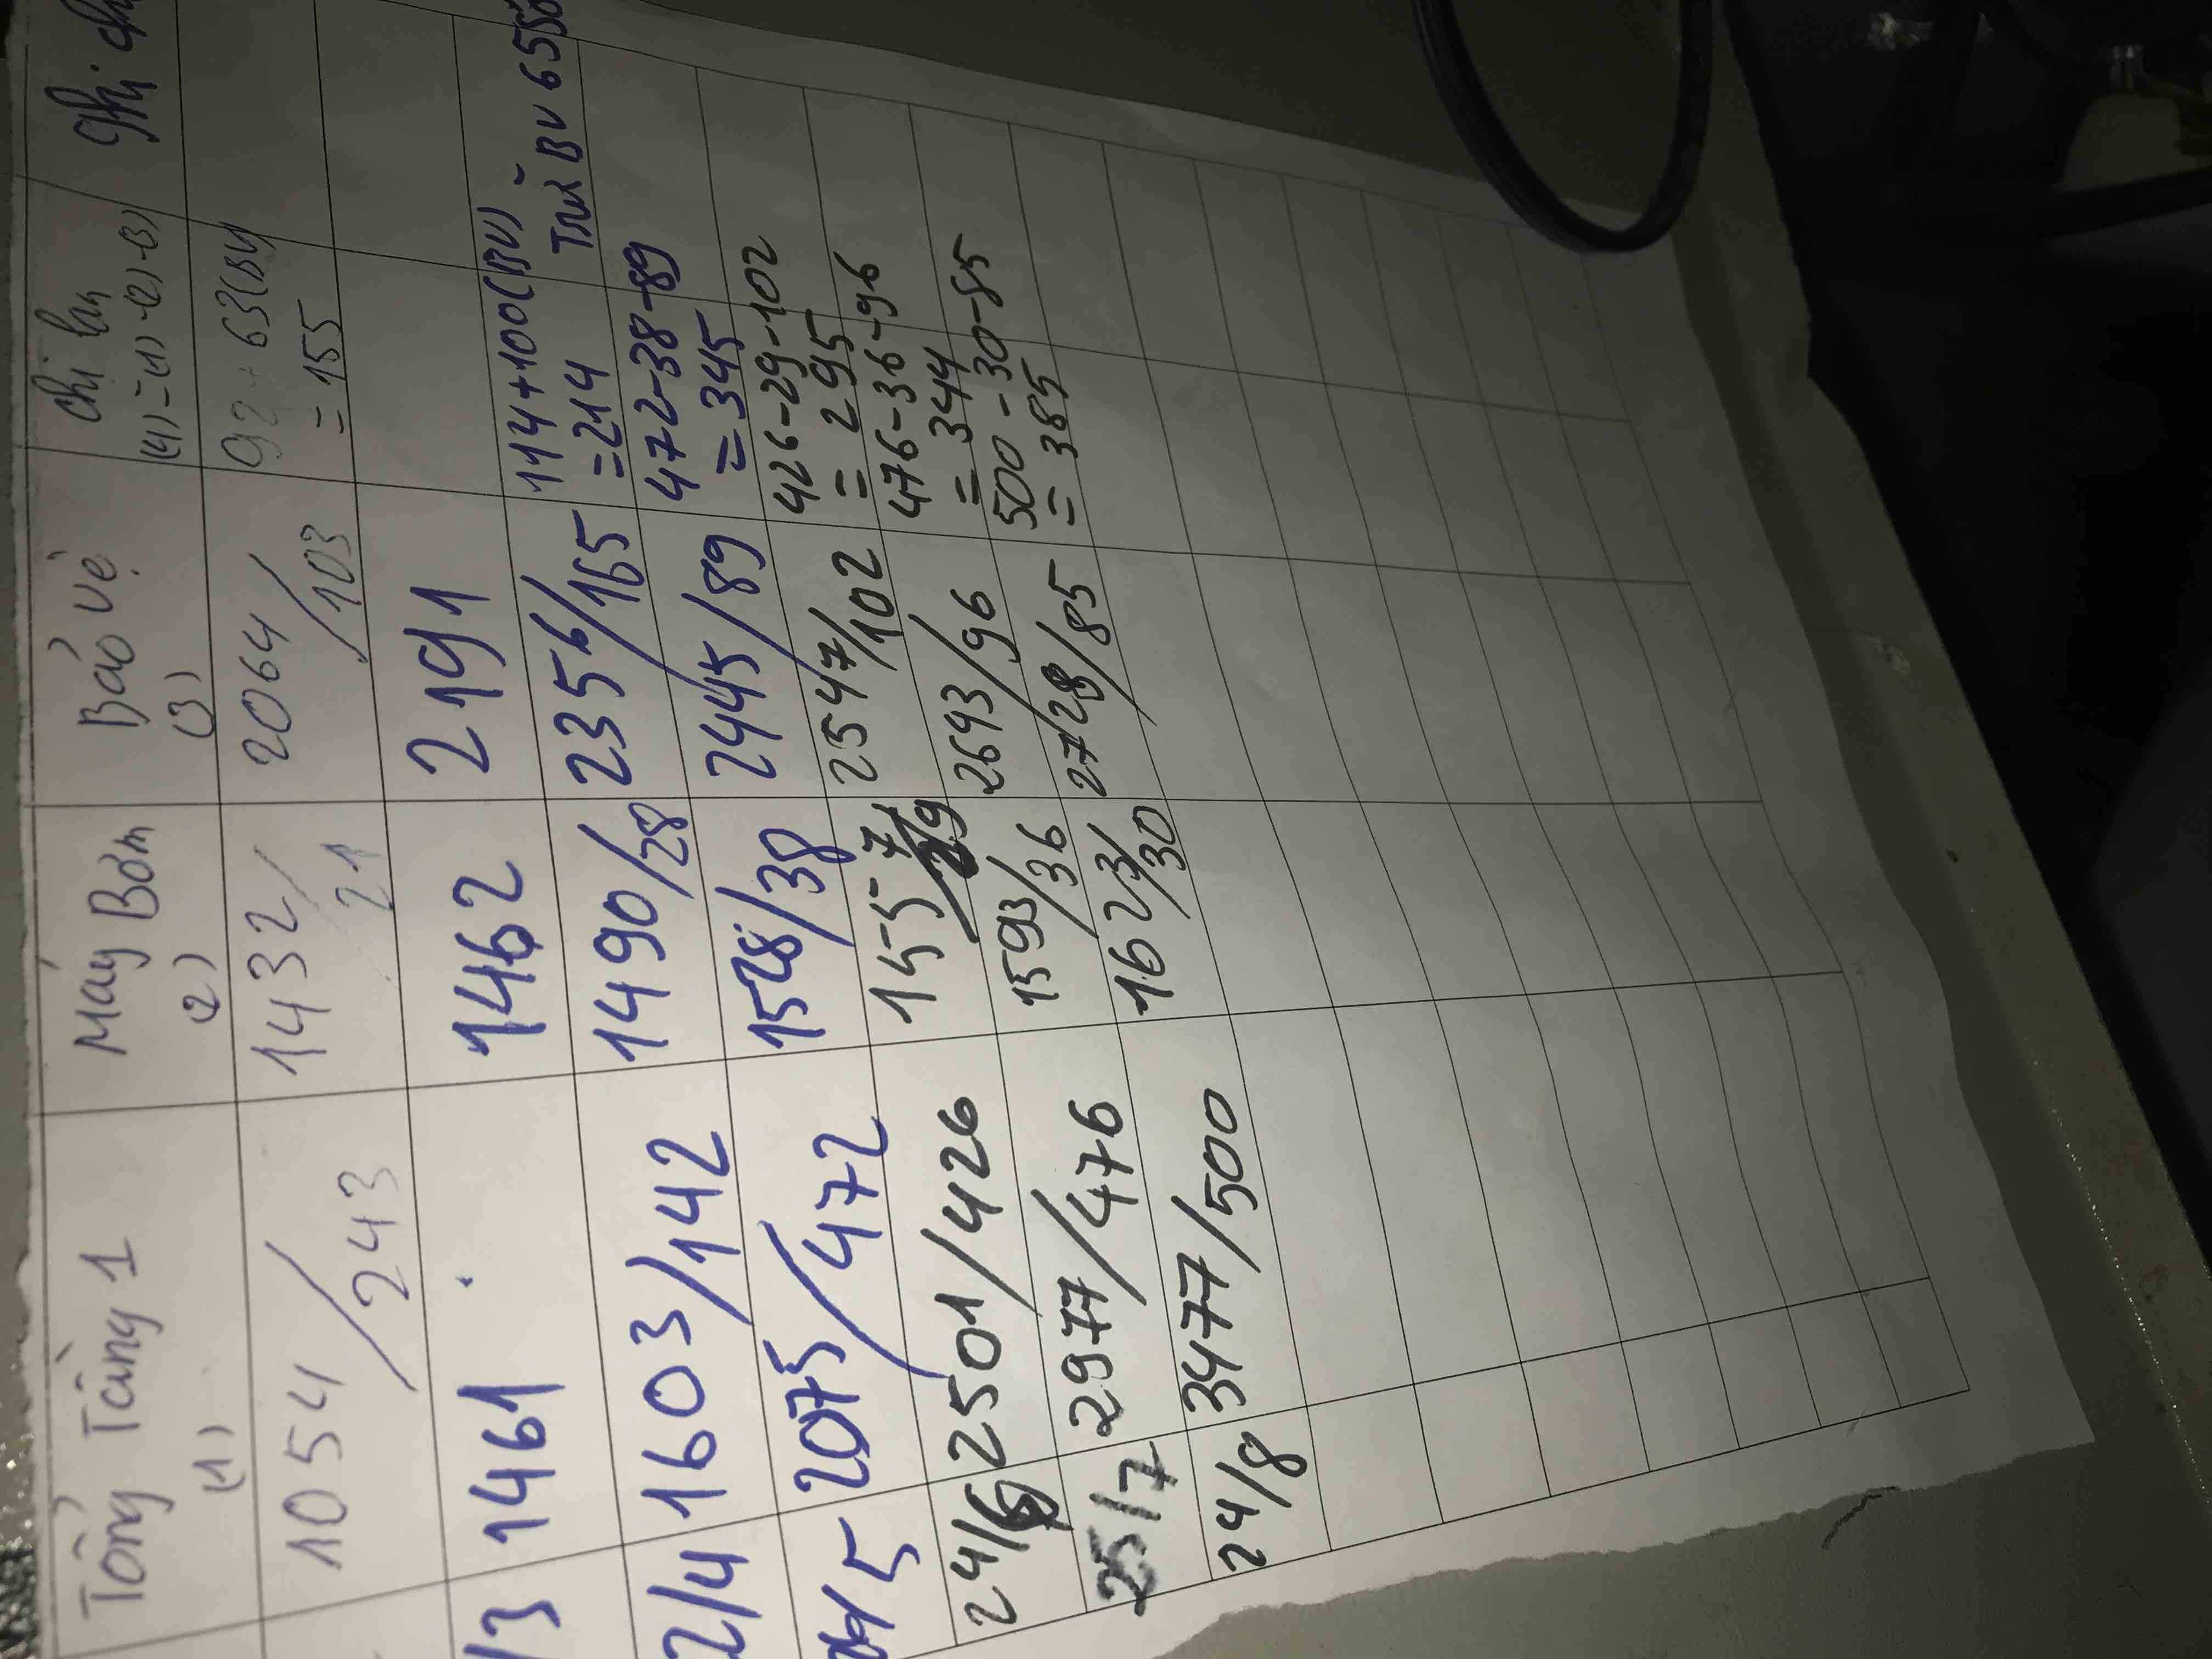 Tổng Tầng 1 Máy Bơm Bảo vệ Chị lan Ghi
(1) (2) (3) (4)=(1)-(2)-(3)
1054/243 1432/21 2064/103 92+63(BV)
=155
/3 1461 1462 2191
2/4 1603/142 1490/28 2356/165 114+100(BV)
=214 Trừ BV 65 số
/5 2075/472 1528/38 2445/89 472-38-89
=345
24/6 2501/426 1557/29 2547/102 426-29-102
=295
25/7 2977/476 1593/36 2643/96 476-36-96
=344
24/8 3477/500 1623/30 2728/85 500-30-85
=385